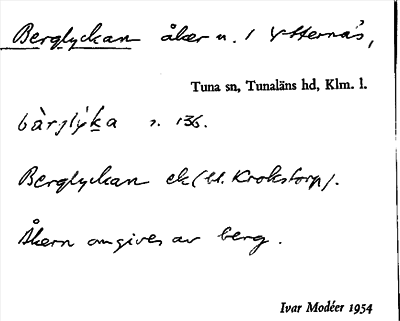 Berglyckan åker n. 1 Ytternäs,
Tuna sn, Tunaläns hd, Klm. l.
bàrjlýka s. 136.
Berglyckan ek (bl. Krokstorp).
Åkern omgives av berg.
Ivar Modéer 1954